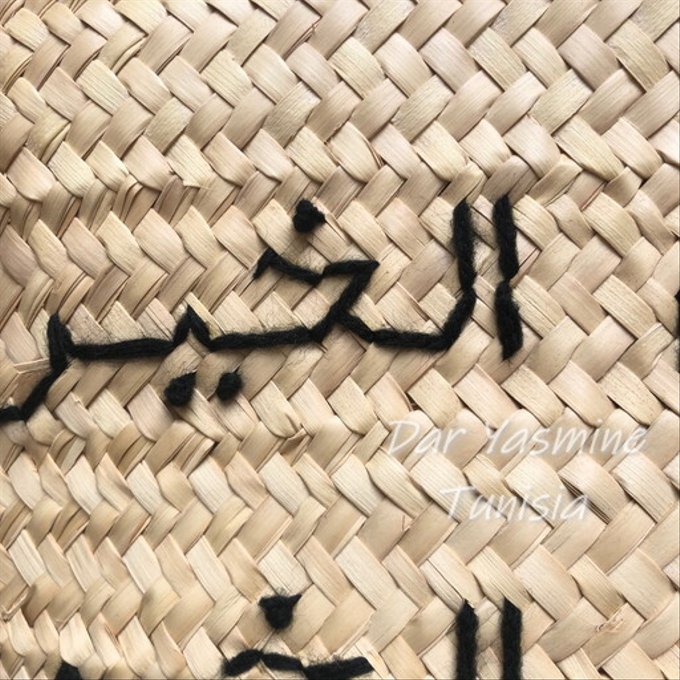 الخير
Dar Yasmine
Tunisia